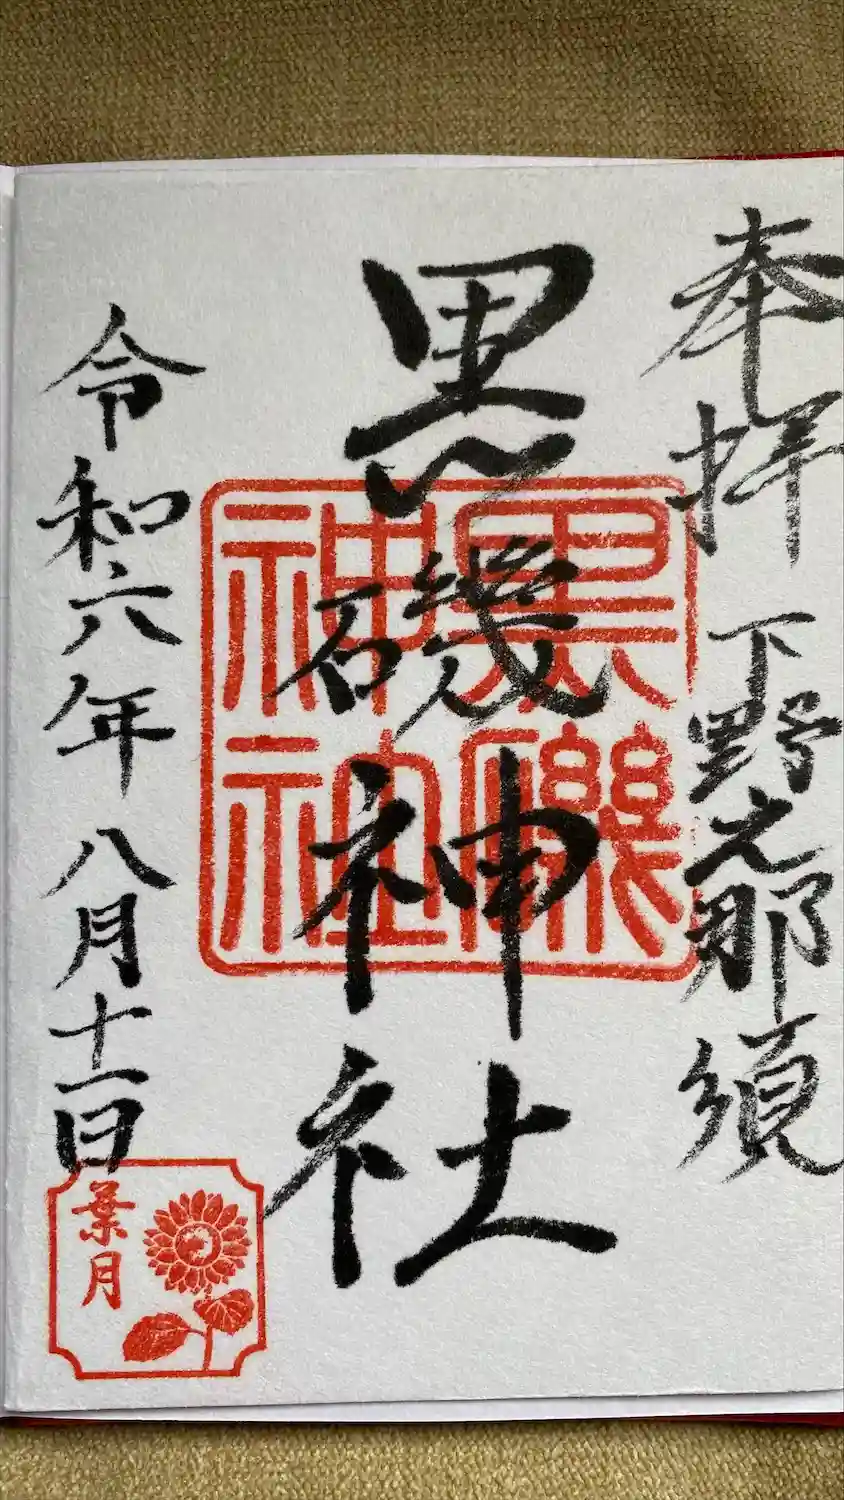 奉拝 下野之那須
黒磯神社
黒磯
神社
令和六年八月十一日
葉月